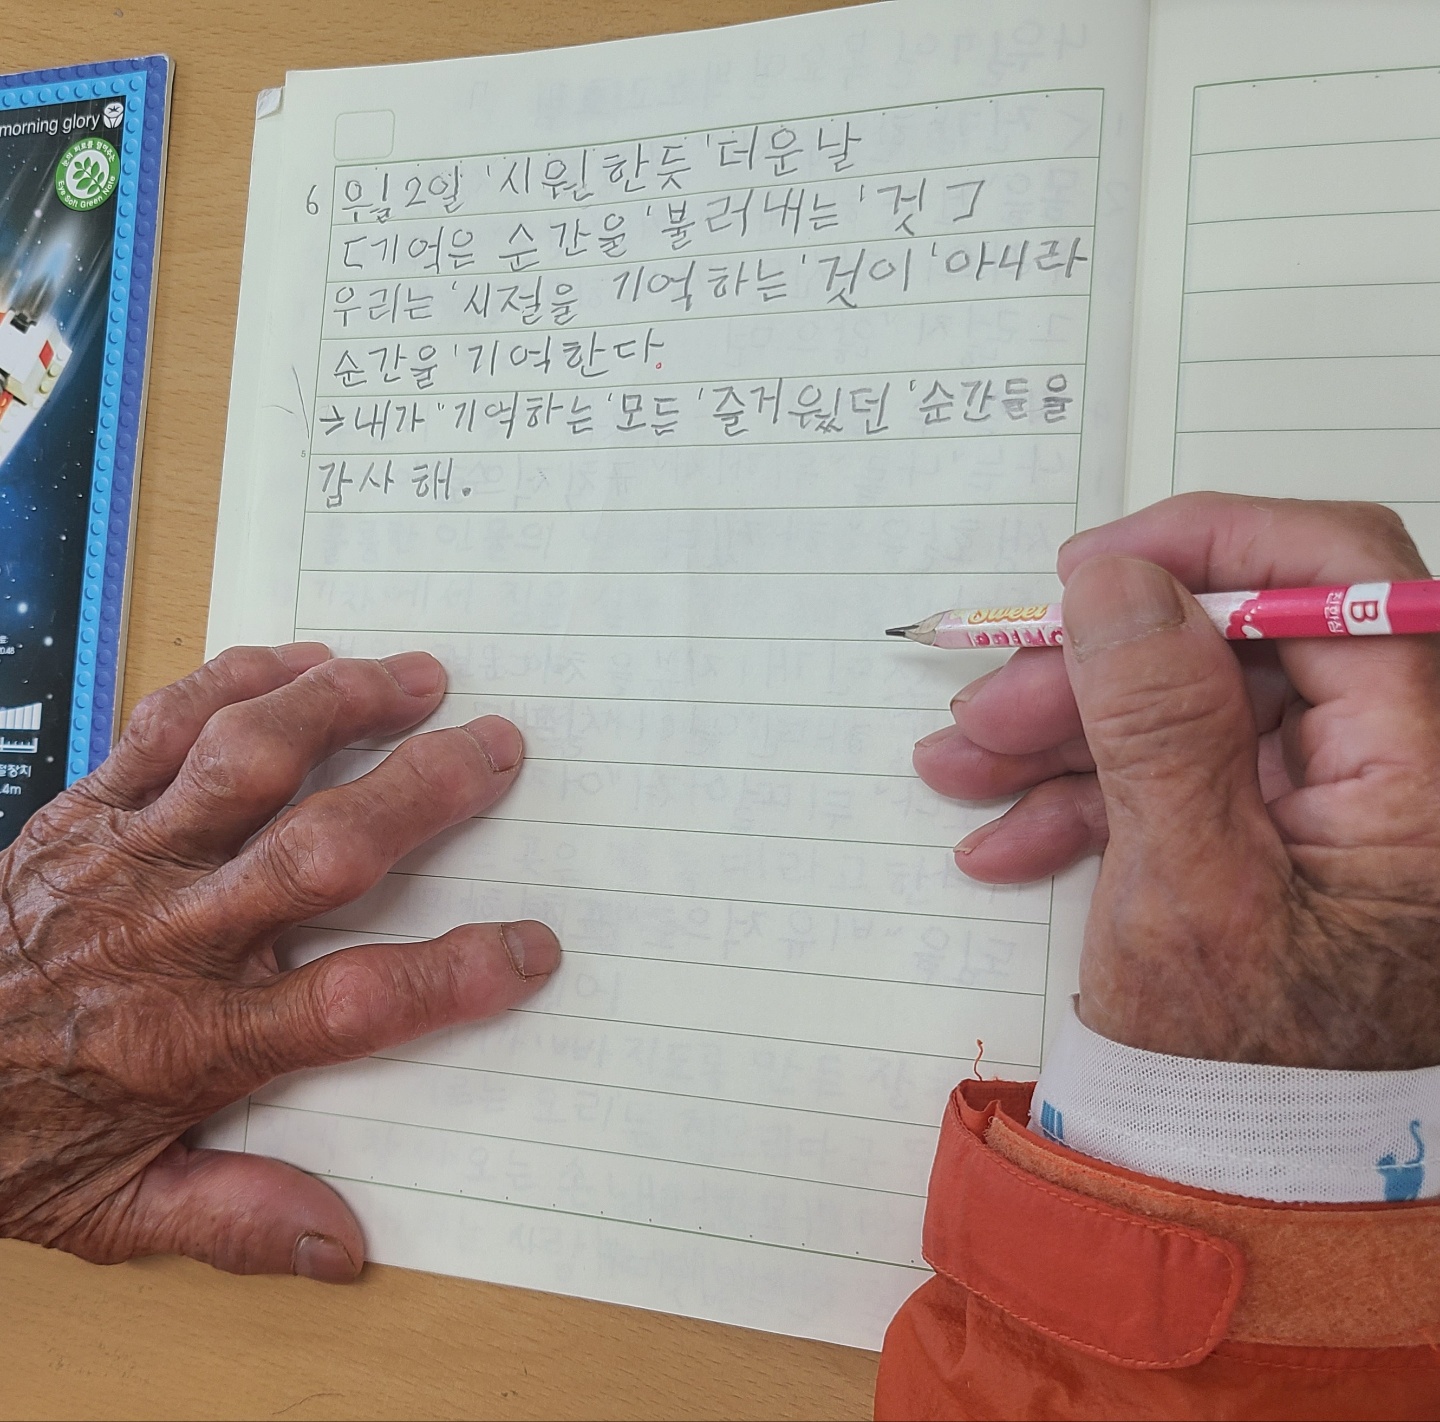 morning glory
눈의 피로를 덜어주는
Eye Soft Green Note
6 월 2일 '시원한듯 '더운날
[기억은 순간을 '불러내는 '것 그
우리는 '시절을 기억하는 '것이 '아니라
순간을 '기억한다.
→내가 "기억하는 '모든 '즐거웠던 '순간들을
5
감사해.
Sweet
B
진한심